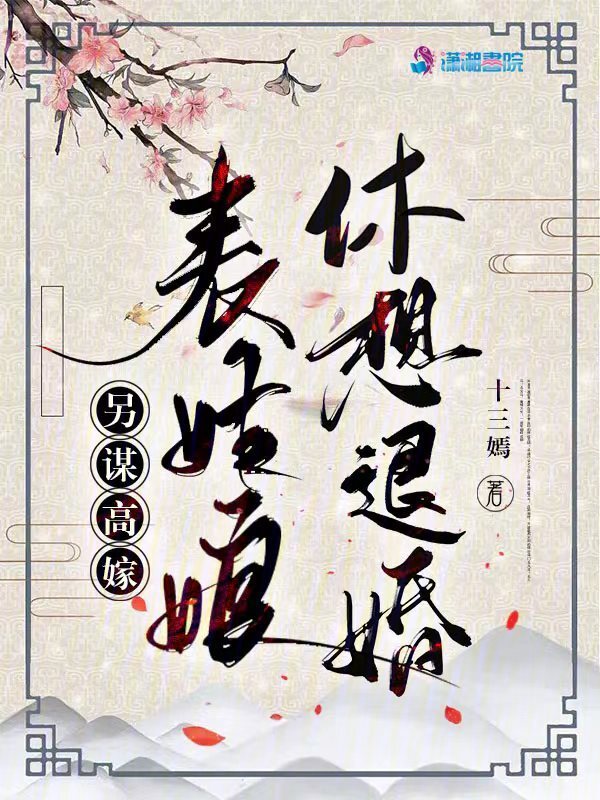 潇湘書院
休想退婚
表姑娘
另谋高嫁
十三嫣 著